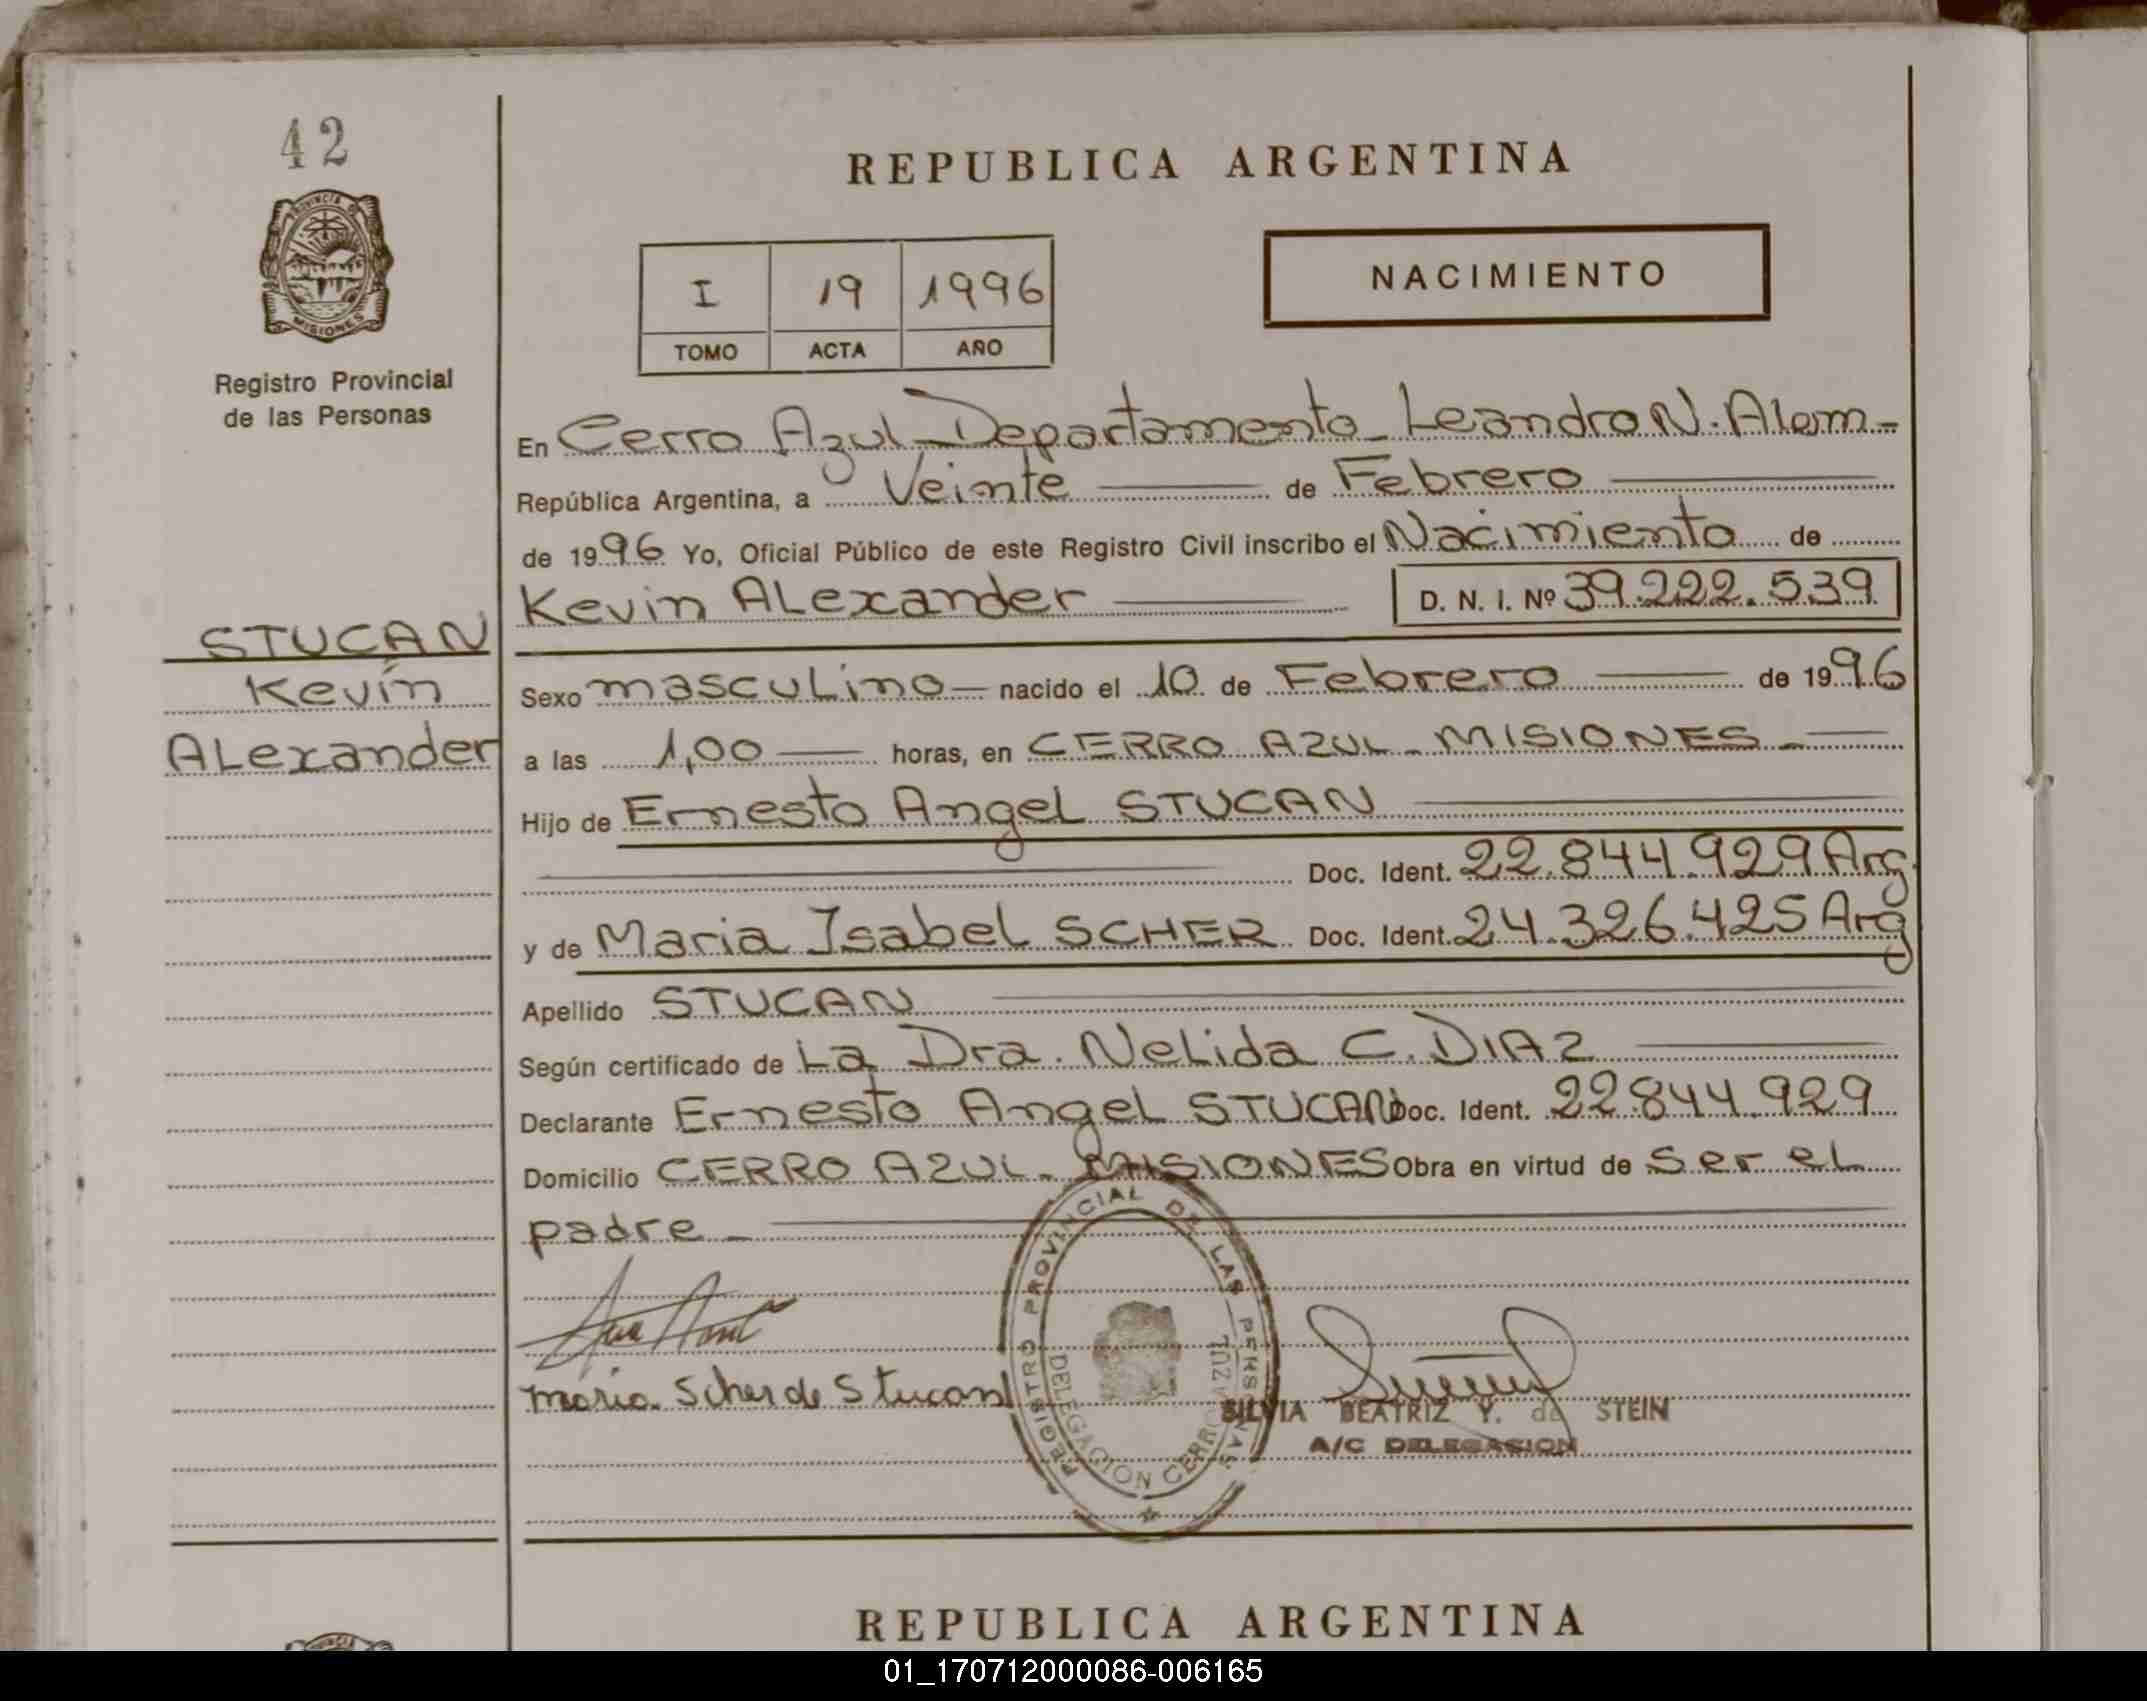 42
PROVINCIA DE
MISIONES
Registro Provincial
de las Personas
STUCAN
Kevin
Alexander
REPUBLICA ARGENTINA
I 19 1996
TOMO ACTA AÑO
NACIMIENTO
En Cerro Azul - Departamento - Leandro N. Alem -
República Argentina, a Veinte de Febrero
de 1996 Yo, Oficial Público de este Registro Civil inscribo el Nacimiento de
Kevin Alexander D. N. I. Nº 39.222.539
Sexo masculino nacido el 10 de Febrero de 1996
a las 1,00 horas, en CERRO AZUL - MISIONES -
Hijo de Ernesto Angel STUCAN
Doc. Ident. 22.844.929 Arg.
y de Maria Isabel SCHER Doc. Ident. 24.326.425 Arg
Apellido STUCAN
Según certificado de La Dra. Nelida C. DIAZ
Declarante Ernesto Angel STUCAN Doc. Ident. 22.844.929
Domicilio CERRO AZUL - MISIONES Obra en virtud de ser el
padre -
Maria Scher de Stucan
REGISTRO PROVINCIAL DE LAS PERSONAS
DELEGACION CERRO AZUL
SILVIA BEATRIZ Y. de STEIN
A/C DELEGACION
REPUBLICA ARGENTINA
01_170712000086-006165